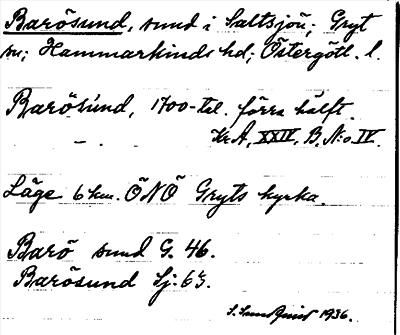 Barösund, sund i Saltsjön; Gryt
sn; Hammarkinds hd; Östergötl. l.
Barösund, 1700-tal. förra hälft.
Kr.A, XXIV, B. N:o IV.
Läge 6 km. ÖNÖ Gryts kyrka.
Barö sund G. 46.
Barösund Sj. 63.
1936.